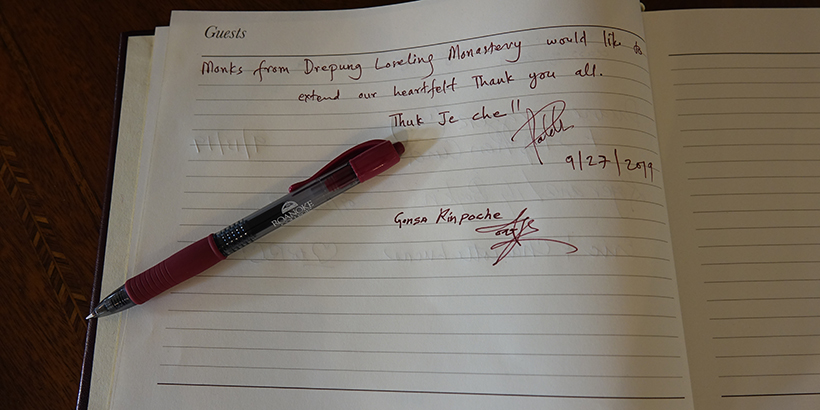 Guests
Monks from Drepung Loseling Monastery would like to
extend our heartfelt Thank you all.
Thuk Je che!!
9/27/2019
Gonsa Rinpoche
ROANOKE